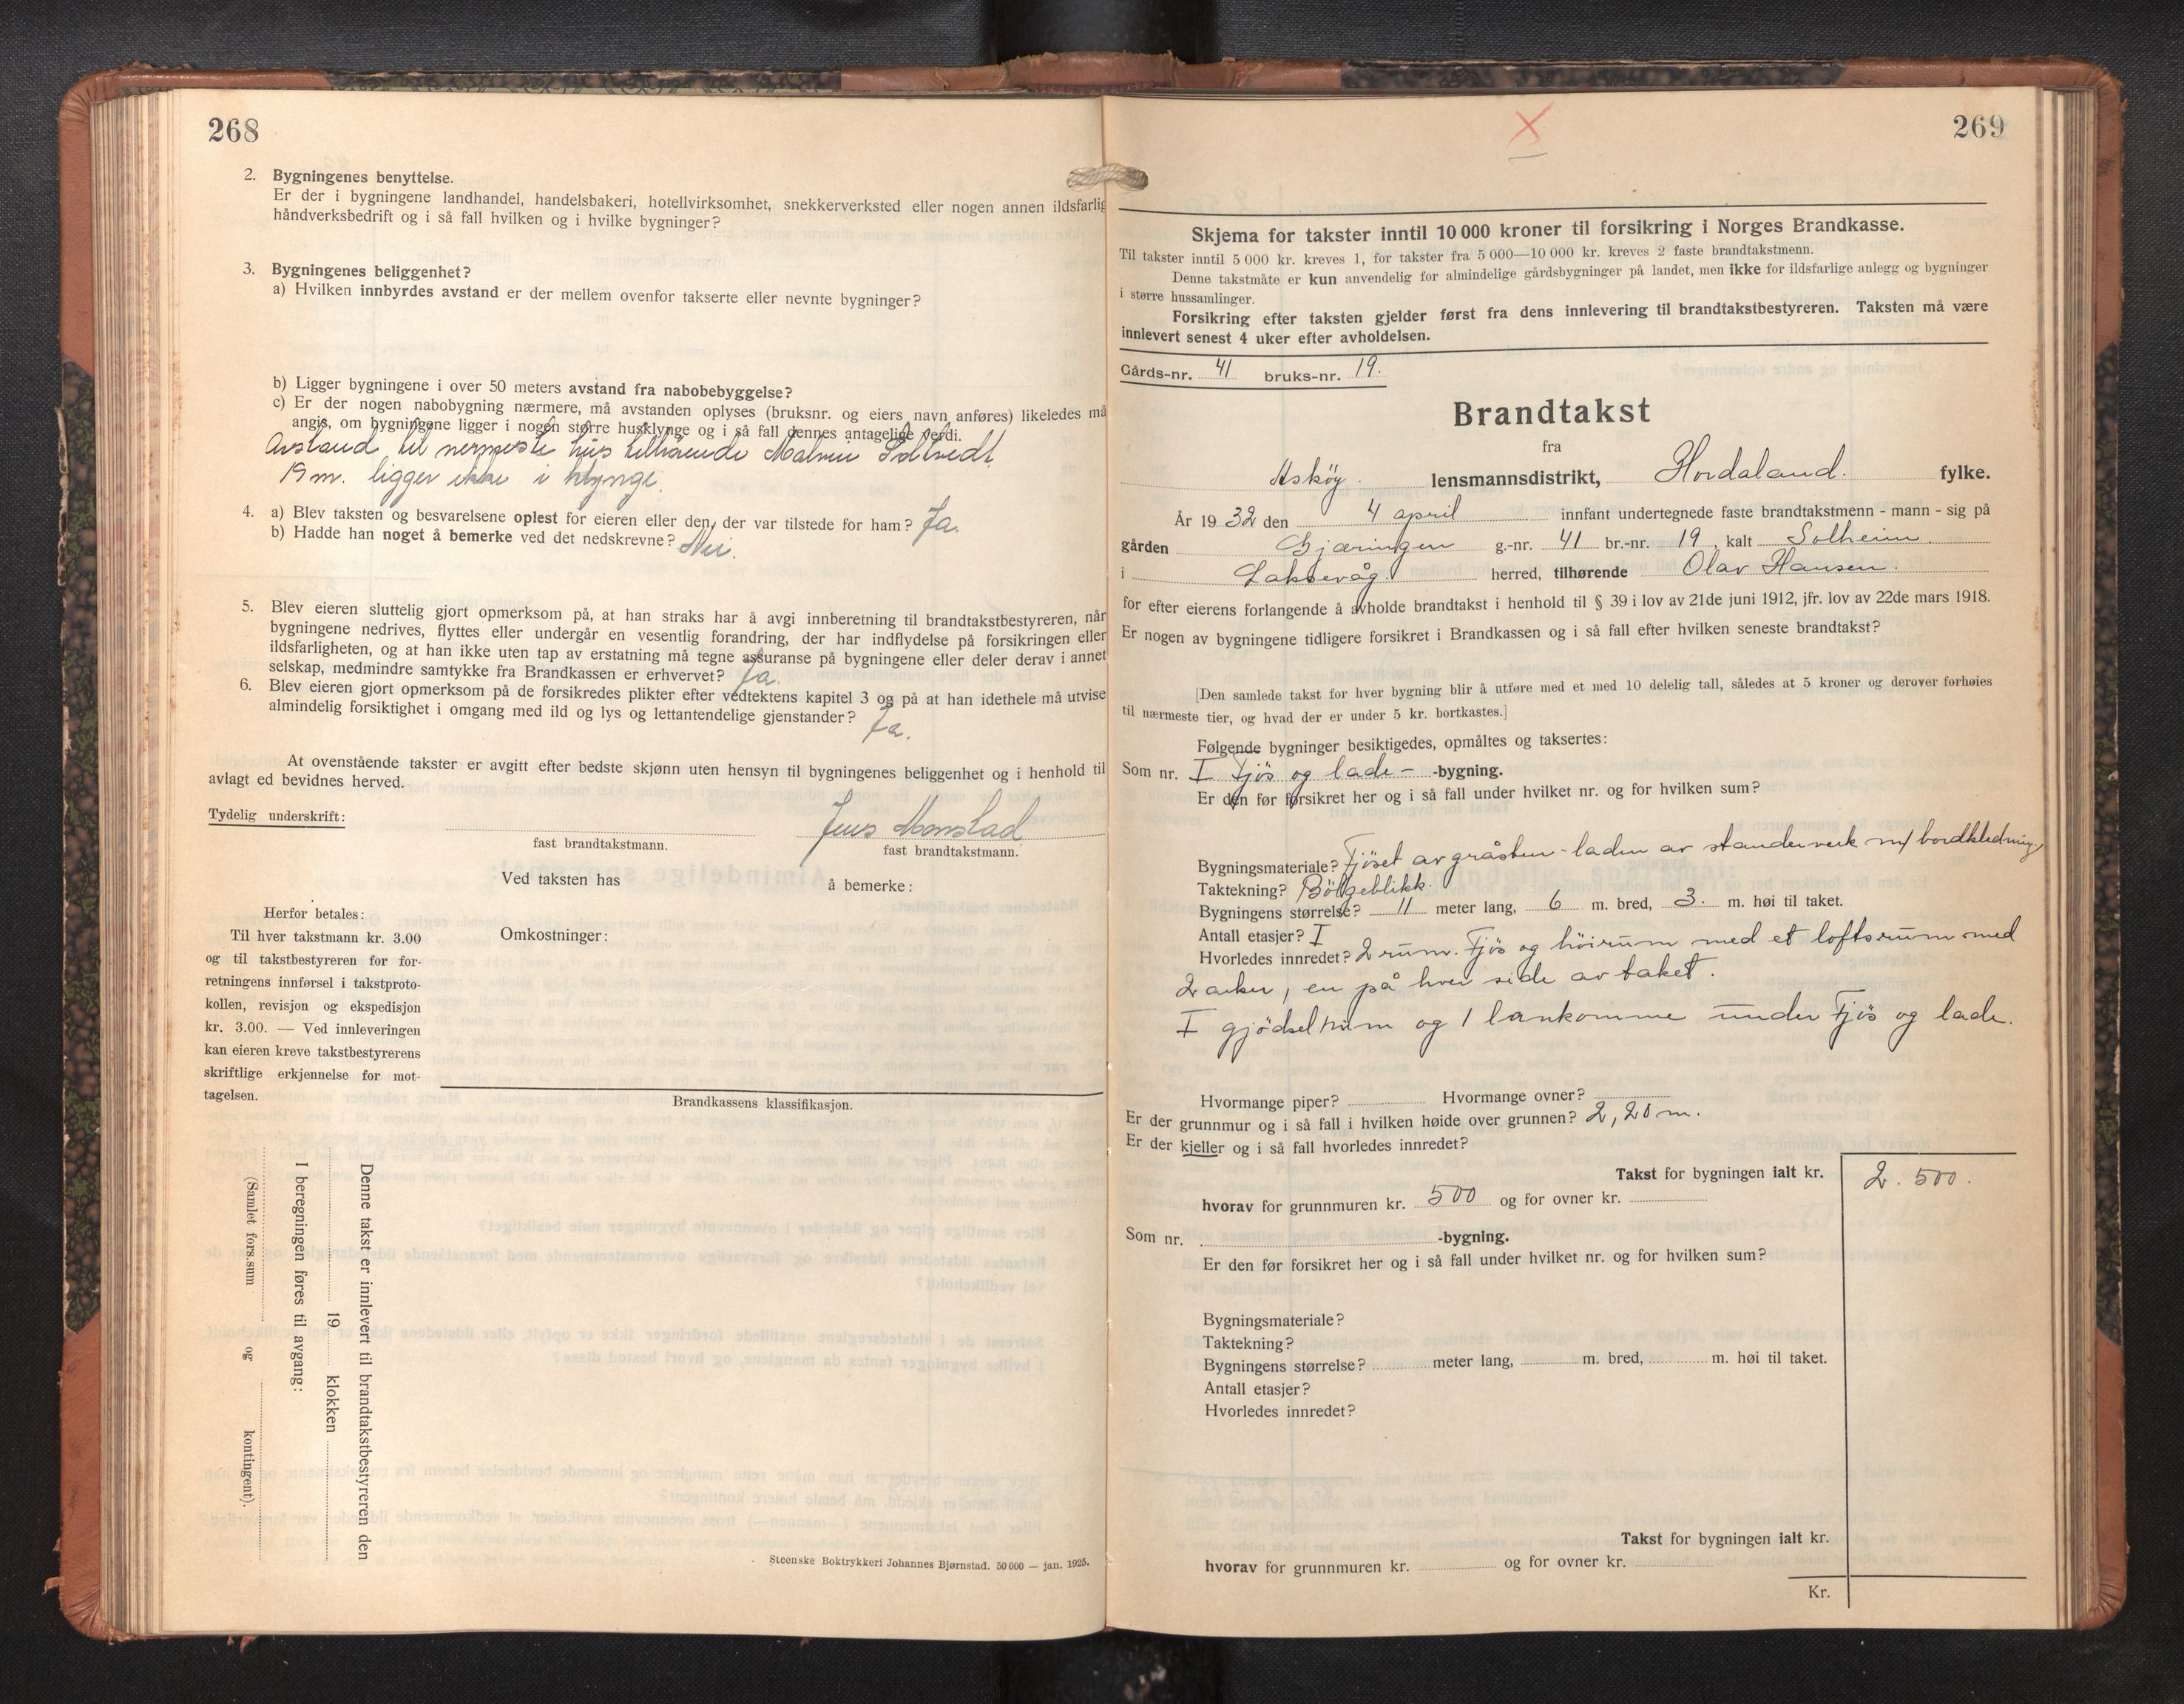 268
2. Bygningenes benyttelse.
Er der i bygningene landhandel, handelsbakeri, hotellvirksomhet, snekkerverksted eller nogen annen ildsfarlig
håndverksbedrift og i så fall hvilken og i hvilke bygninger?
3. Bygningenes beliggenhet?
a) Hvilken innbyrdes avstand er der mellem ovenfor takserte eller nevnte bygninger?
b) Ligger bygningene i over 50 meters avstand fra nabobebyggelse?
c) Er der nogen nabobygning nærmere, må avstanden oplyses (bruksnr. og eiers navn anføres) likeledes må
angis, om bygningene ligger i nogen større husklynge og i så fall dennes antagelige verdi.
Avstand til nermeste hus tilhörende
19 m. ligger ikke i klynge.
4. a) Blev taksten og besvarelsene oplest for eieren eller den, der var tilstede for ham? Ja.
b) Hadde han noget å bemerke ved det nedskrevne? Nei.
5. Blev eieren sluttelig gjort opmerksom på, at han straks har å avgi innberetning til brandtakstbestyreren, når
bygningene nedrives, flyttes eller undergår en vesentlig forandring, der har indflydelse på forsikringen eller
ildsfarligheten, og at han ikke uten tap av erstatning må tegne assuranse på bygningene eller deler derav i annet
selskap, medmindre samtykke fra Brandkassen er erhvervet? Ja.
6. Blev eieren gjort opmerksom på de forsikredes plikter efter vedtektens kapitel 3 og på at han idethele må utvise
almindelig forsiktighet i omgang med ild og lys og lettantendelige gjenstander? Ja.
At ovenstående takster er avgitt efter bedste skjønn uten hensyn til bygningenes beliggenhet og i henhold til
avlagt ed bevidnes herved.
Tydelig underskrift: Jens Monstad
fast brandtakstmann. fast brandtakstmann.
Ved taksten has å bemerke:
Herfor betales:
Til hver takstmann kr. 3.00
og til takstbestyreren for for-
retningens innførsel i takstproto-
kollen, revisjon og ekspedisjon
kr. 3.00. — Ved innleveringen
kan eieren kreve takstbestyrerens
skriftlige erkjennelse for mot-
tagelsen.
Omkostninger:
Brandkassens klassifikasjon.
Denne takst er innlevert til brandtakstbestyreren den
19 klokken
I beregningen føres til avgang:
(Samlet fors.sum og kontingent).
Steenske Boktrykkeri Johannes Bjørnstad. 50 000 — jan. 1925.
X
269
Skjema for takster inntil 10 000 kroner til forsikring i Norges Brandkasse.
Til takster inntil 5 000 kr. kreves 1, for takster fra 5 000—10 000 kr. kreves 2 faste brandtakstmenn.
Denne takstmåte er kun anvendelig for almindelige gårdsbygninger på landet, men ikke for ildsfarlige anlegg og bygninger
i større hussamlinger.
Forsikring efter taksten gjelder først fra dens innlevering til brandtakstbestyreren. Taksten må være
innlevert senest 4 uker efter avholdelsen.
Gårds-nr. 41 bruks-nr. 19.
Brandtakst
fra
Asköy. lensmannsdistrikt, Hordaland. fylke.
År 1932 den 4 april innfant undertegnede faste brandtakstmenn - mann - sig på
gården Gjæringen g.-nr. 41 br.-nr. 19, kalt Solheim
i Laksevåg. herred, tilhørende Olav Hansen.
for efter eierens forlangende å avholde brandtakst i henhold til § 39 i lov av 21de juni 1912, jfr. lov av 22de mars 1918.
Er nogen av bygningene tidligere forsikret i Brandkassen og i så fall efter hvilken seneste brandtakst?
[Den samlede takst for hver bygning blir å utføre med et med 10 delelig tall, således at 5 kroner og derover forhøies
til nærmeste tier, og hvad der er under 5 kr. bortkastes.]
Følgende bygninger besiktigedes, opmåltes og taksertes:
Som nr. I Fjös og lade- -bygning.
Er den før forsikret her og i så fall under hvilket nr. og for hvilken sum?
Bygningsmateriale? Fjöset av gråsten - laden av standerverk m/ bordkledning
Taktekning? Bölgeblikk.
Bygningens størrelse? 11 meter lang, 6 m. bred, 3. m. høi til taket.
Antall etasjer? I
Hvorledes innredet? 2 rum. Fjös og höirum med et loftsrum med
2 arker, en på hver side av taket.
I gjödselrum og 1 under Fjös og lade.
Hvormange piper? Hvormange ovner?
Er der grunnmur og i så fall i hvilken høide over grunnen? 2,20 m.
Er der kjeller og i så fall hvorledes innredet?
Takst for bygningen ialt kr. 2.500.
hvorav for grunnmuren kr. 500 og for ovner kr.
Som nr. -bygning.
Er den før forsikret her og i så fall under hvilket nr. og for hvilken sum?
Bygningsmateriale?
Taktekning?
Bygningens størrelse? meter lang, m. bred, m. høi til taket.
Antall etasjer?
Hvorledes innredet?
Takst for bygningen ialt kr.
hvorav for grunnmuren kr. og for ovner kr.
Kr.